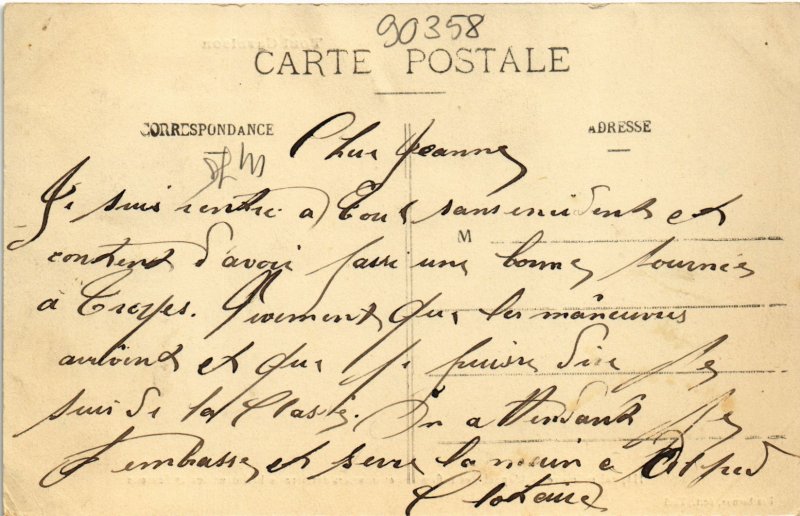 90358
CARTE POSTALE
CORRESPONDANCE
ADRESSE
Chère Jeanne
Je suis rentré à Toul sans incidents et
M
content d'avoir passé une bonne journée
à Troyes. Vivement que les manœuvres
arrivent et que je puisse dire je
suis de la Classe. En attendant je
t'embrasse et serre la main à Alfred
Clotaire